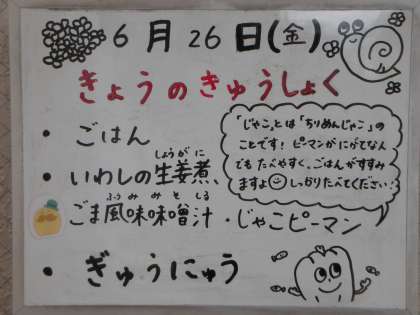 6月26日(金)
きょうのきゅうしょく
・ ごはん
・ いわしの生姜煮
しょうがに
ふうみみそしる
・ ごま風味味噌汁 ・じゃこピーマン
・ ぎゅうにゅう
「じゃこ」とは「ちりめんじゃこ」の
ことです！ピーマンがにがてなん
でもたべやすく、ごはんがすすみ
ますよ しっかりたべてください！